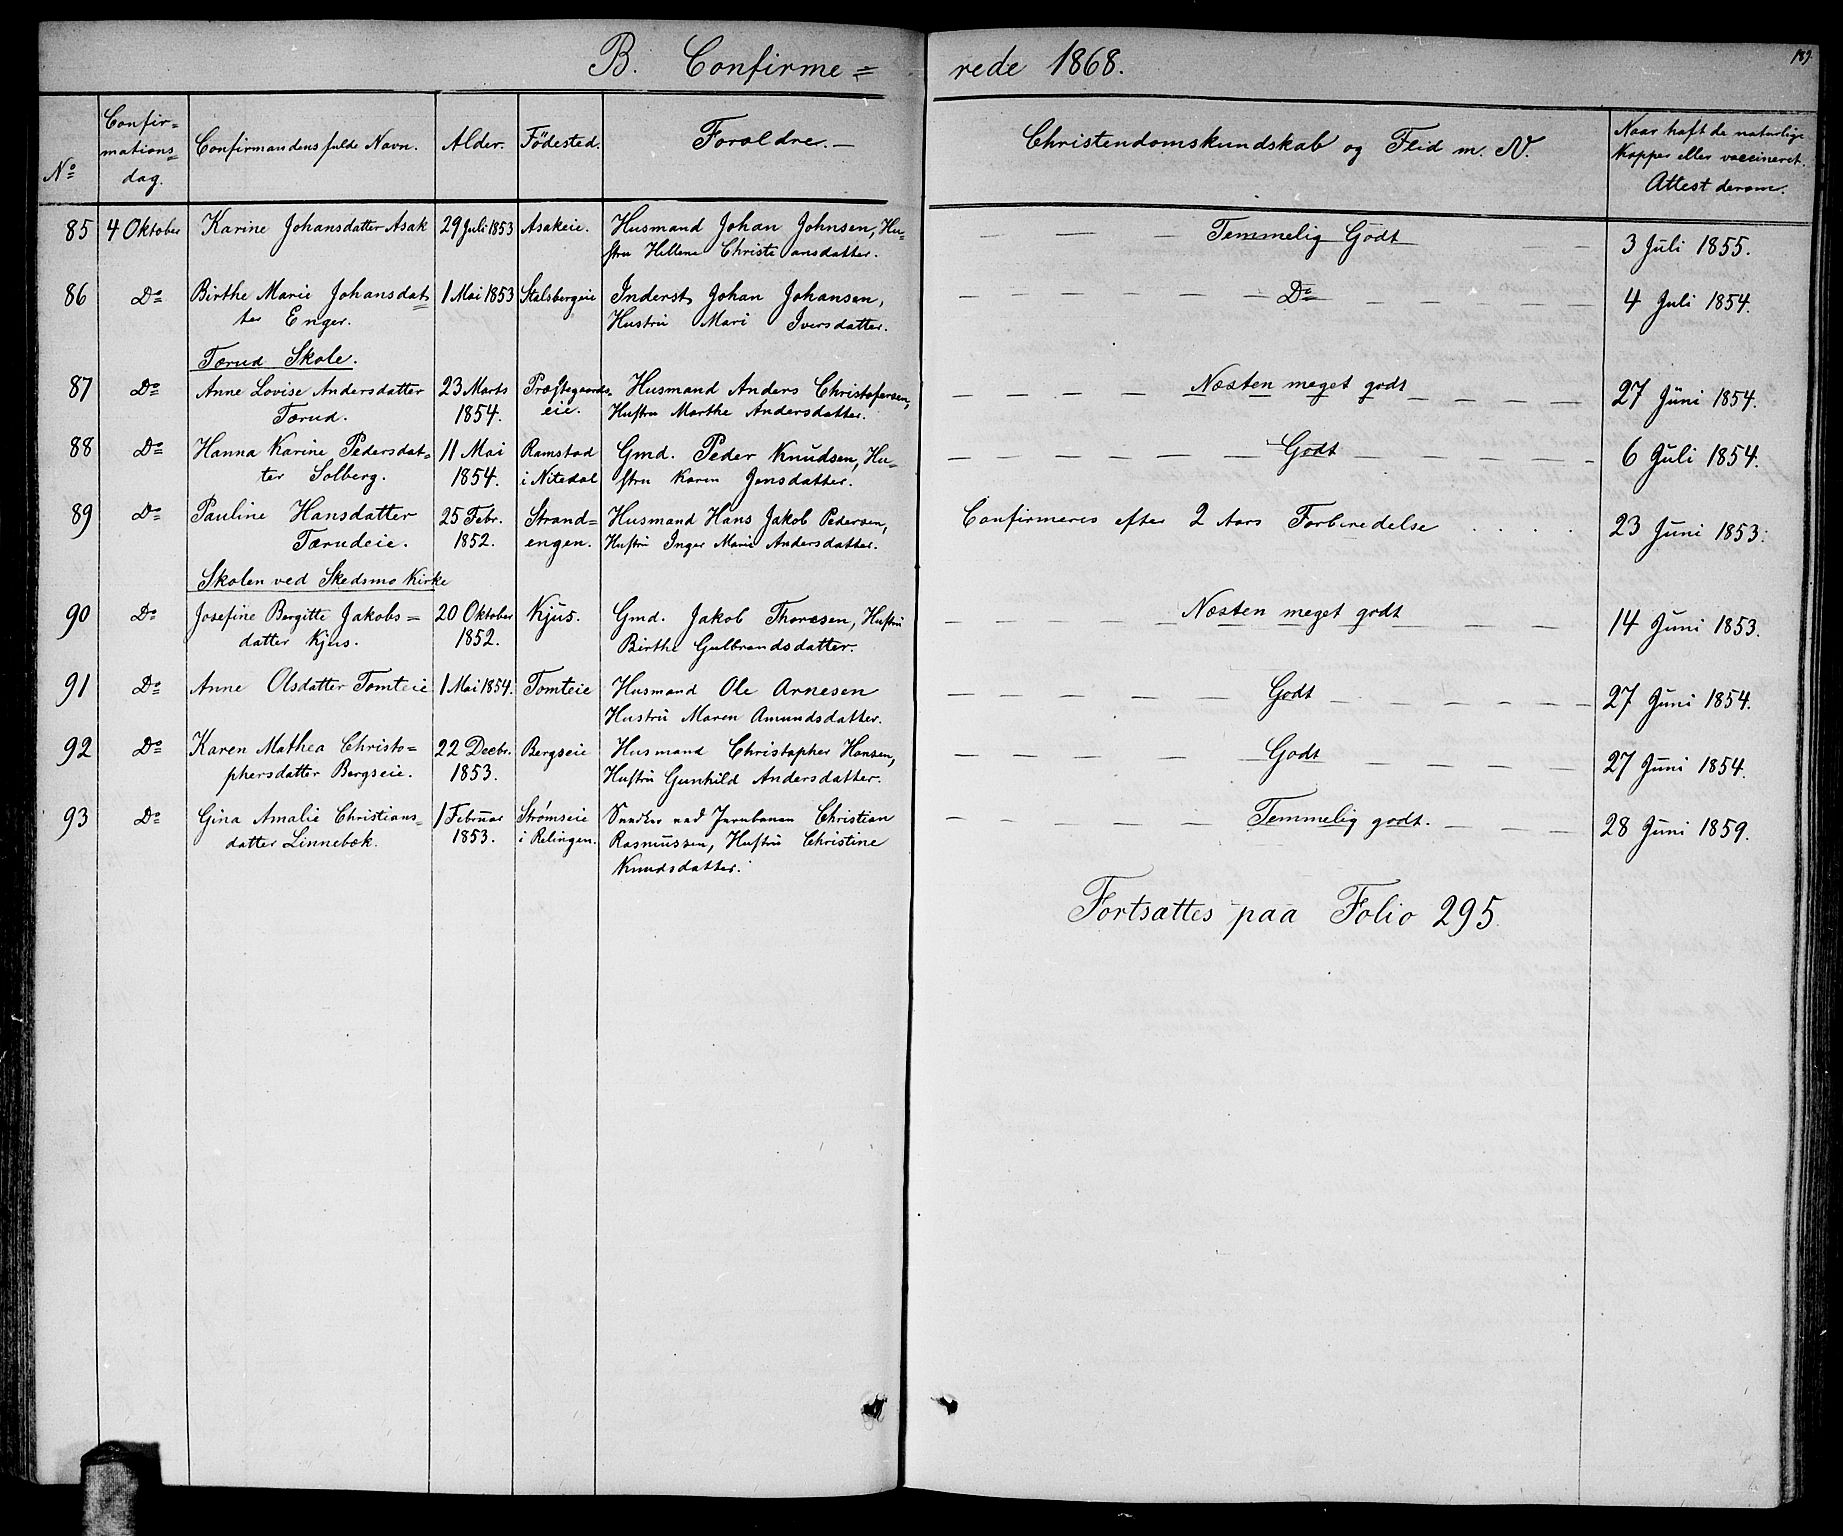 B. Confirme=
rede 1868.
189.
No
Confir=
mations=
dag.
Confirmandens fulde Navn.
Alder.
Födested.
Forældre.
Christendomskundskab og Flid m. V.
Naar haft de naturlige
Kopper eller vaccineret.
Attest derom.
85 4 Oktober Karine Johansdatter Asak 29 Juli 1853 Asakeie. Husmand Johan Johnsen, Hu= — — — Temmelig Godt — 3 Juli 1855.
stru Hellene Christiansdatter.
86 Do Birthe Marie Johansdat= 1 Mai 1853 Stalsbergeie Inderst, Johan Johansen, — — — — — — Do — — — — — — 4 Juli 1854.
ter Enger. Hustru Mari Iversdatter.
Tærud Skole.
87 Do Anne Lovise Andersdatter 23 Marts Præstegaards= Husmand Anders Christofersen, — — — — Næsten meget godt — — — — 27 Juni 1854.
Tærud. 1854. eie. Hustru Marthe Andersdatter.
88 Do Hanna Karine Pedersdat= 11 Mai Ramstad Gmd. Peder Knudsen, Hu= — — — — — Godt — — — — — 6 Juli 1854.
ter Solberg. 1854. i Nitedal stru Karen Jensdatter.
89 Do Pauline Hansdatter 25 Febr. Strand= Husmand Hans Jakob Pedersen, Confirmeres efter 2 Aars Forberedelse . . . . 23 Juni 1853.
Tærudeie. 1852. engen. Hustru Inger Marie Andersdatter.
Skolen ved Skedsmo Kirke
90 Do Josefine Bergitte Jakobs= 20 Oktober Kjus. Gmd. Jakob Thoresen, Hustru — — — — Næsten meget godt — — — — 14 Juni 1853.
datter Kjus. 1852. Birthe Gulbrandsdatter.
91 Do Anne Olsdatter Tomteie 1 Mai 1854. Tomteie Husmand Ole Arnesen — — — — — Godt — — — — — 27 Juni 1854.
Hustru Maren Amundsdatter.
92 Do Karen Mathea Christo= 22 Decbr. Bergseie Husmand Christopher Hansen, — — — — — Godt — — — — — 27 Juni 1854.
phersdatter Bergseie. 1853. Hustru Gunhild Andersdatter.
93 Do Gina Amalie Christians= 1 Februar Strømseie Snedker ved Jernbanen Christian — — — — — Temmelig godt. — — — 28 Juni 1859.
datter Linnebæk. 1853. i Relingen. Rasmussen, Hustru Christine
Knudsdatter.
Fortsættes paa Folio 295.